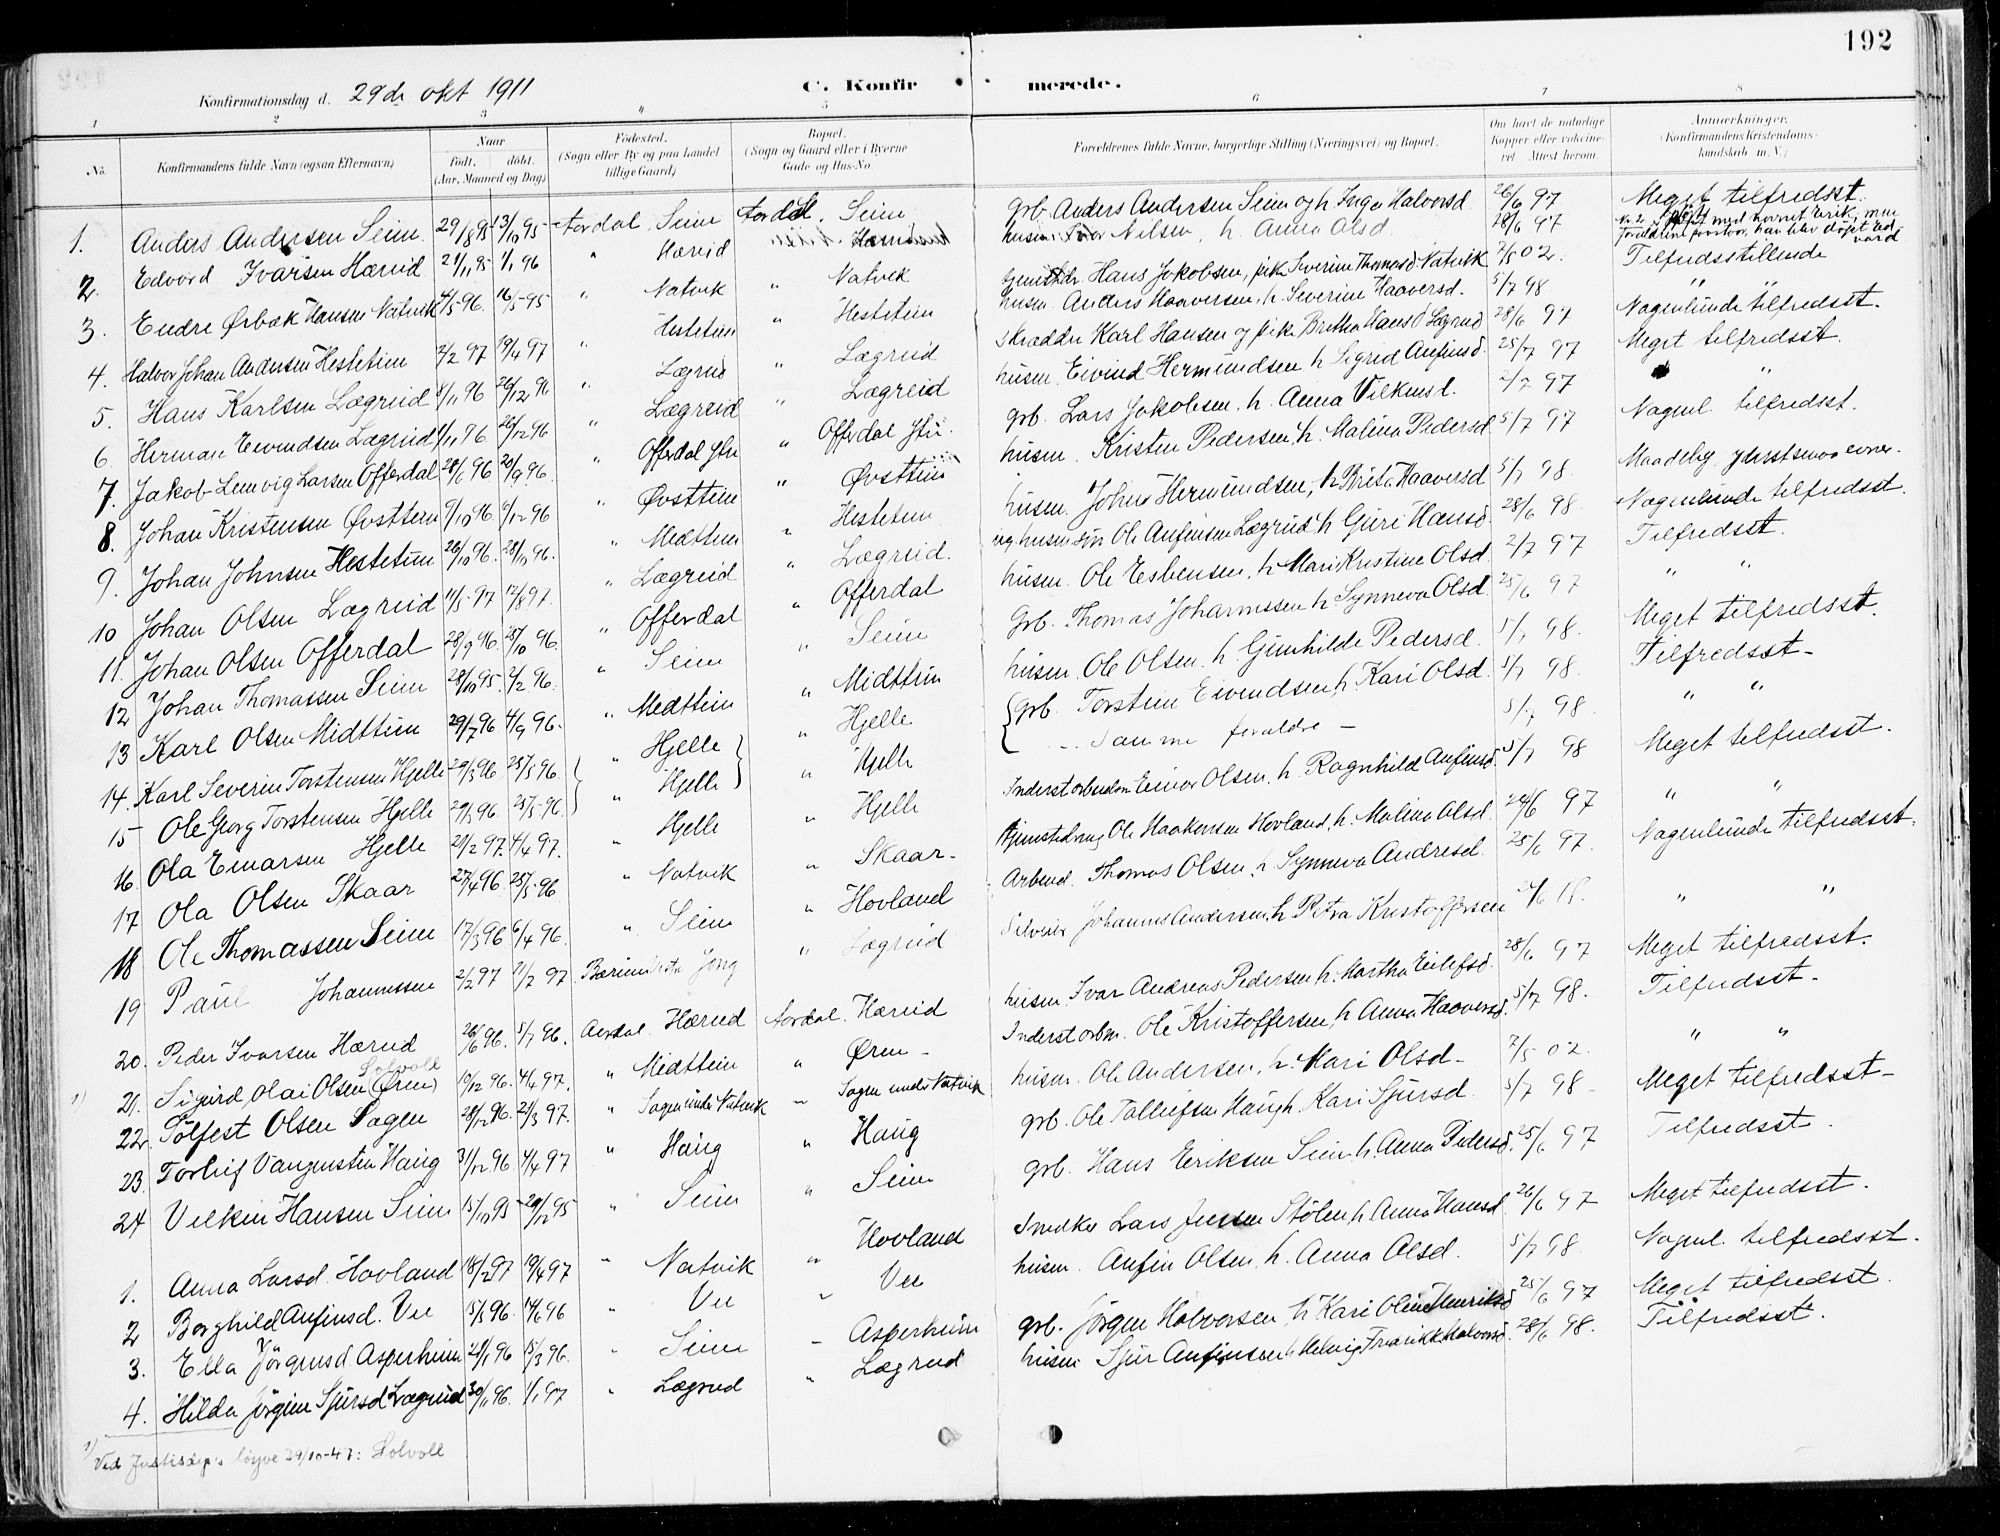 192
Konfirmationsdag d. 29de okt 1911 C. Konfirmerede.
1 2 3 4 5 6 7 8
No. Konfirmandens fulde Navn (ogsaa Efternavn) Naar født. døbt. (Aar, Maaned og Dag) Fødested. (Sogn eller By og paa Landet tillige Gaard) Bopæl. (Sogn og Gaard eller i Byerne Gade og Hus-No. Forældrenes fulde Navne, borgerlige Stilling (Næringsvei) og Bopæl. Om havt de naturlige Kopper eller vakcineret Attest herom. Anmærkninger. (Konfirmandens Kristendomskundskab m. V.)
1. Anders Andersen Seim 29/8 95 13/10 95 Aardal Seim Aardal. Seim grb. Anders Andersen Seim og h. Inga Halvorsd. 26/6 97 Meget tilfredsst.
2. Edvard Ivarsen Hæreid 21/11 95 1/1 96 " Hæreid husm. Ivar Nilsen, h. Anna Olsd. 28/6 97 No 2 med navnet Erik, men forældrene paastaar, han blev døpt Edvard
3. Endre Ørbæk Hansen Natvik 4/5 96 16/5 95 " Natvik " Natvik Hans Jakobsen, pike Severine Thomasd. Natvik 7/5 02. Tilfredsstillende
4. Halvor Johan Andersen Hestetun 2/2 97 19/4 97 " Hestetun " Hestetun husm. Anders Haaversen, h. Severine Haaversd. 5/7 98 " "
5. Hans Karlsen Lægreid 8/11 96 26/12 96 " Lægreid " Lægreid Skrædder Karl Hansen og pike Britha Hansd Lægreid 28/6 97 Nogenlunde tilfredsst.
6. Herman Eivindsen Lægreid 9/11 96 26/12 96 " Lægreid " Lægreid husm. Eivind Hermundsen h Sigrid Anfinsd. 25/7 97 Meget tilfredsst.
7. Jakob Lemvig Larsen Offerdal 28/6 96 20/9 96. " Offerdal ytri " Offerdal Ytri. grb. Lars Jakobsen. h. Anna Vilkensd. 2/7 97 "
8. Johan Kristensen Øvsttun 9/10 96 6/12 96 " Øvsttun " Øvsttun husm. Kristen Pedersen h. Malina Pedersd 5/7 97 Nogenl. tilfredsst.
9. Johan Johnsen Hestetun 26/10 96. 28/10 96. " Medttun " Hestetun husm. Johns Hermundsen, h Brita Haaversd 5/7 98. Maadelig, yderst smaa evner.
10 Johan Olsen Lægreid 11/5 97 12/8 97. " Lægreid " Lægreid. ug husm søn Ole Anfinsen Lægreid h Guri Hansd. 28/6 98. Nogenlunde tilfredsst.
11. Johan Olsen Offerdal 28/9 96 25/10 96. " Offerdal " Offerdal husm. Ole Esbensen, h. Mari Kristine Olsd. 2/7 97 Tilfredsst.
12 Johan Thomassen Seim 28/10 95. 2/2 96. " Seim " Seim Grb. Thomas Johannssen h. Synneva Olsd 25/6 97 " "
13 Karl Olsen Midttun 29/7 96 4/9 96. " Medttun " Midttun husm. Ole Olsen. h. Gunhilde Pedersd. 5/7 98. Meget tilfredsst.
14. Karl Severin Torstensen Hjelle 29/3 96 25/5 96. " Hjelle " Hjelle grb. Torstein Eivendsen, h. Kari Olsd. 5/7 98. Tilfredsst-
15 Ole Georg Torstensen Hjelle 29/3 96. 25/5 96. " Hjelle " Hjelle - Samme forældre - 5/7 98. " "
16 Ola Einarsen Hjelle 21/2 97. 4/4 97. " Hjelle " Hjelle Inderst arbeidsm Einar Olsen, h. Ragnhild Anfinsd. 5/7 98 Meget tilfredsst.
17 Ola Olsen Skaar 27/4 96. 25/5 96 " Natvik " Skaar- Ole Haakonsen Hovland, h. Malina Olsd. 29/6 97 " "
18 Ole Thomassen Seim 17/3 96 6/4 96. " Seim " Hovland Arbeid. Thomas Olsen, h Synneva Andresd. 25/6 97. Nogenlunde tilfredsst.
19 Paul Johannessen 2/2 97 21/2 97. Bærum Jong " Lægreid Johannes Andersen, h. Petra Kristoffersen " "
20. Peder Ivarsen Hæreid 26/6 96. 5/7 96. Aardal. Hæreid Aardal. Hæreid husm. Ivar Andreas Pedersen h. Martha Eilefsd. 28/6 97 Meget tilfredsst.
1) 21. Sigurd Olai Olsen (Øren) Solvoll 10/12 96. 4/4 97. " Midttun " Øren - Inderst arbm. Ole Kristoffersen, h Anna Haaversd. 5/7 98. Tilfredsst-
22. Tolfest Olsen Sagen 28/12 96. 21/3 97. " Sagen under Natvik " Sagen under Natvik husm. Ole Andersen, h. Mari Olsd- 7/5 02. " "
23. Torleif Vangensten Haug 31/12 96 4/4 97 " Haug " Haug grb. Ole Tollefsen Haug h. Kari Sjursd. 5/7 98- Meget tilfredsst-
24 Vilken Hansen Seim 15/10 95 29/12 95 " Seim " Seim grb. Hans Eriksen Seim, h. Anna Pedersd. 25/6 97 Tilfredsst.
1. Anna Larsd. Hovland 18/2 97 19/4 97 " Natvik " Hovland Snedker Lars Jensen Stølen h. Anna Hansd 26/6 97 Meget tilfredsst.
2 Borghild Anfinsd. Vee 15/3 96. 14/6 96 " Vee " Vee husm. Anfin Olsen, h. Anna Olsd. 5/7 98. Nogenl. tilfredsst.
3. Ella Jørgensd Asperheim 24/1 96 15/3 96. " Seim - Asperheim grb. Jørgen Halvorsen h. Kari Oline Henriksd 25/6 97 Meget tilfredsst.
4. Hilda Jørgine Sjursd Lægreid 30/11 96. 1/1 97 " Lægreid " Lægreid husm Sjur Anfinsen h Helvig Fredrikke Halvorsd. 28/6 98. Tilfredsst.
1) Ved Justisdep's løyve 29/10-47: Solvoll